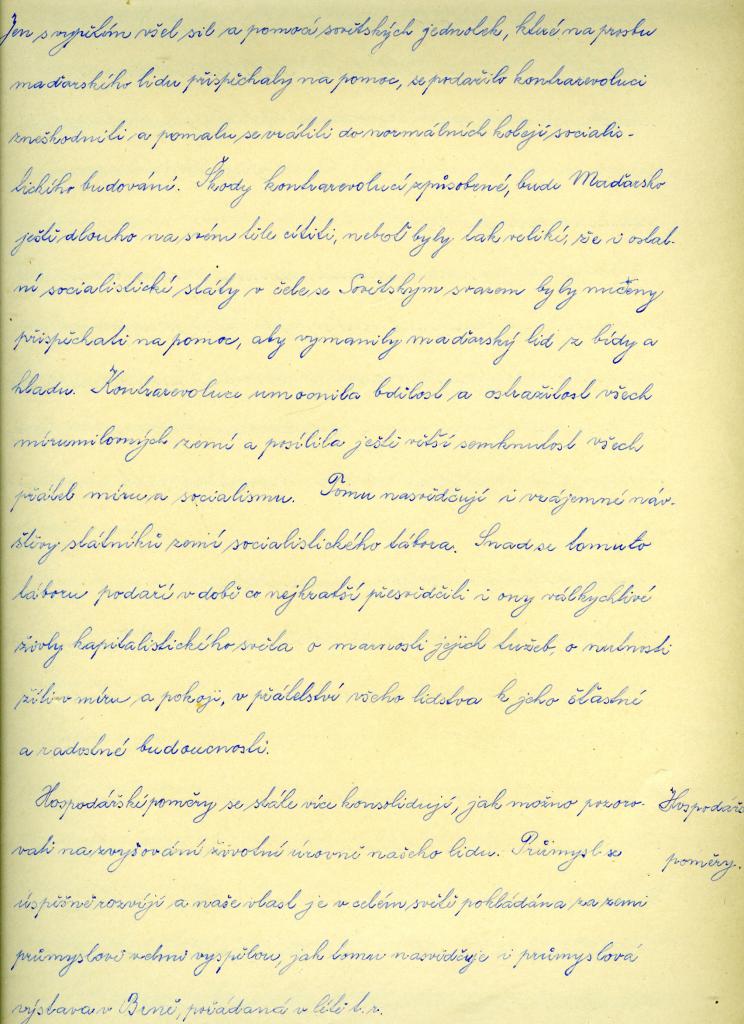 Jen s vypětím všel sil a pomocí sovětských jednotek, které na prosbu
maďarského lidu přispěchaly na pomoc, se podařilo kontrarevoluci
zneškodniti a pomalu se vrátiti do normálních kolejí socialis-
tického budování. Škody kontrarevolucí způsobené, bude Maďarsko
ještě dlouho na svém těle cítiti, neboť byly tak veliké, že i ostat-
ní socialistické státy v čele se Sovětským svazem byly nuceny
přispěchati na pomoc, aby vymanily maďarský lid z bídy a
hladu. Kontrarevoluce umocnila bdělost a ostražitost všech
mírumilovných zemí a posílila ještě větší semknutost všech
přátel míru a socialismu. Tomu nasvědčují i vzájemné náv-
štěvy státníků zemí socialistického tábora. Snad se tomuto
táboru podaří v době co nejkratší přesvědčiti i ony válkychtivé
živly kapitalistického světa o marnosti jejich tužeb, o nutnosti
žíti v míru a pokoji, v přátelství všeho lidstva k jeho šťastné
a radostné budoucnosti.
Hospodářské poměry se stále více konsolidují, jak možno pozoro-
vati na zvyšování životní úrovně našeho lidu. Průmysl se
úspěšně rozvíjí a naše vlast je v celém světě pokládána za zemi
průmyslově velmi vyspělou, jak tomu nasvědčuje i průmyslová
výstava v Brně, pořádaná v létě t. r.
Hospodářs
poměry.